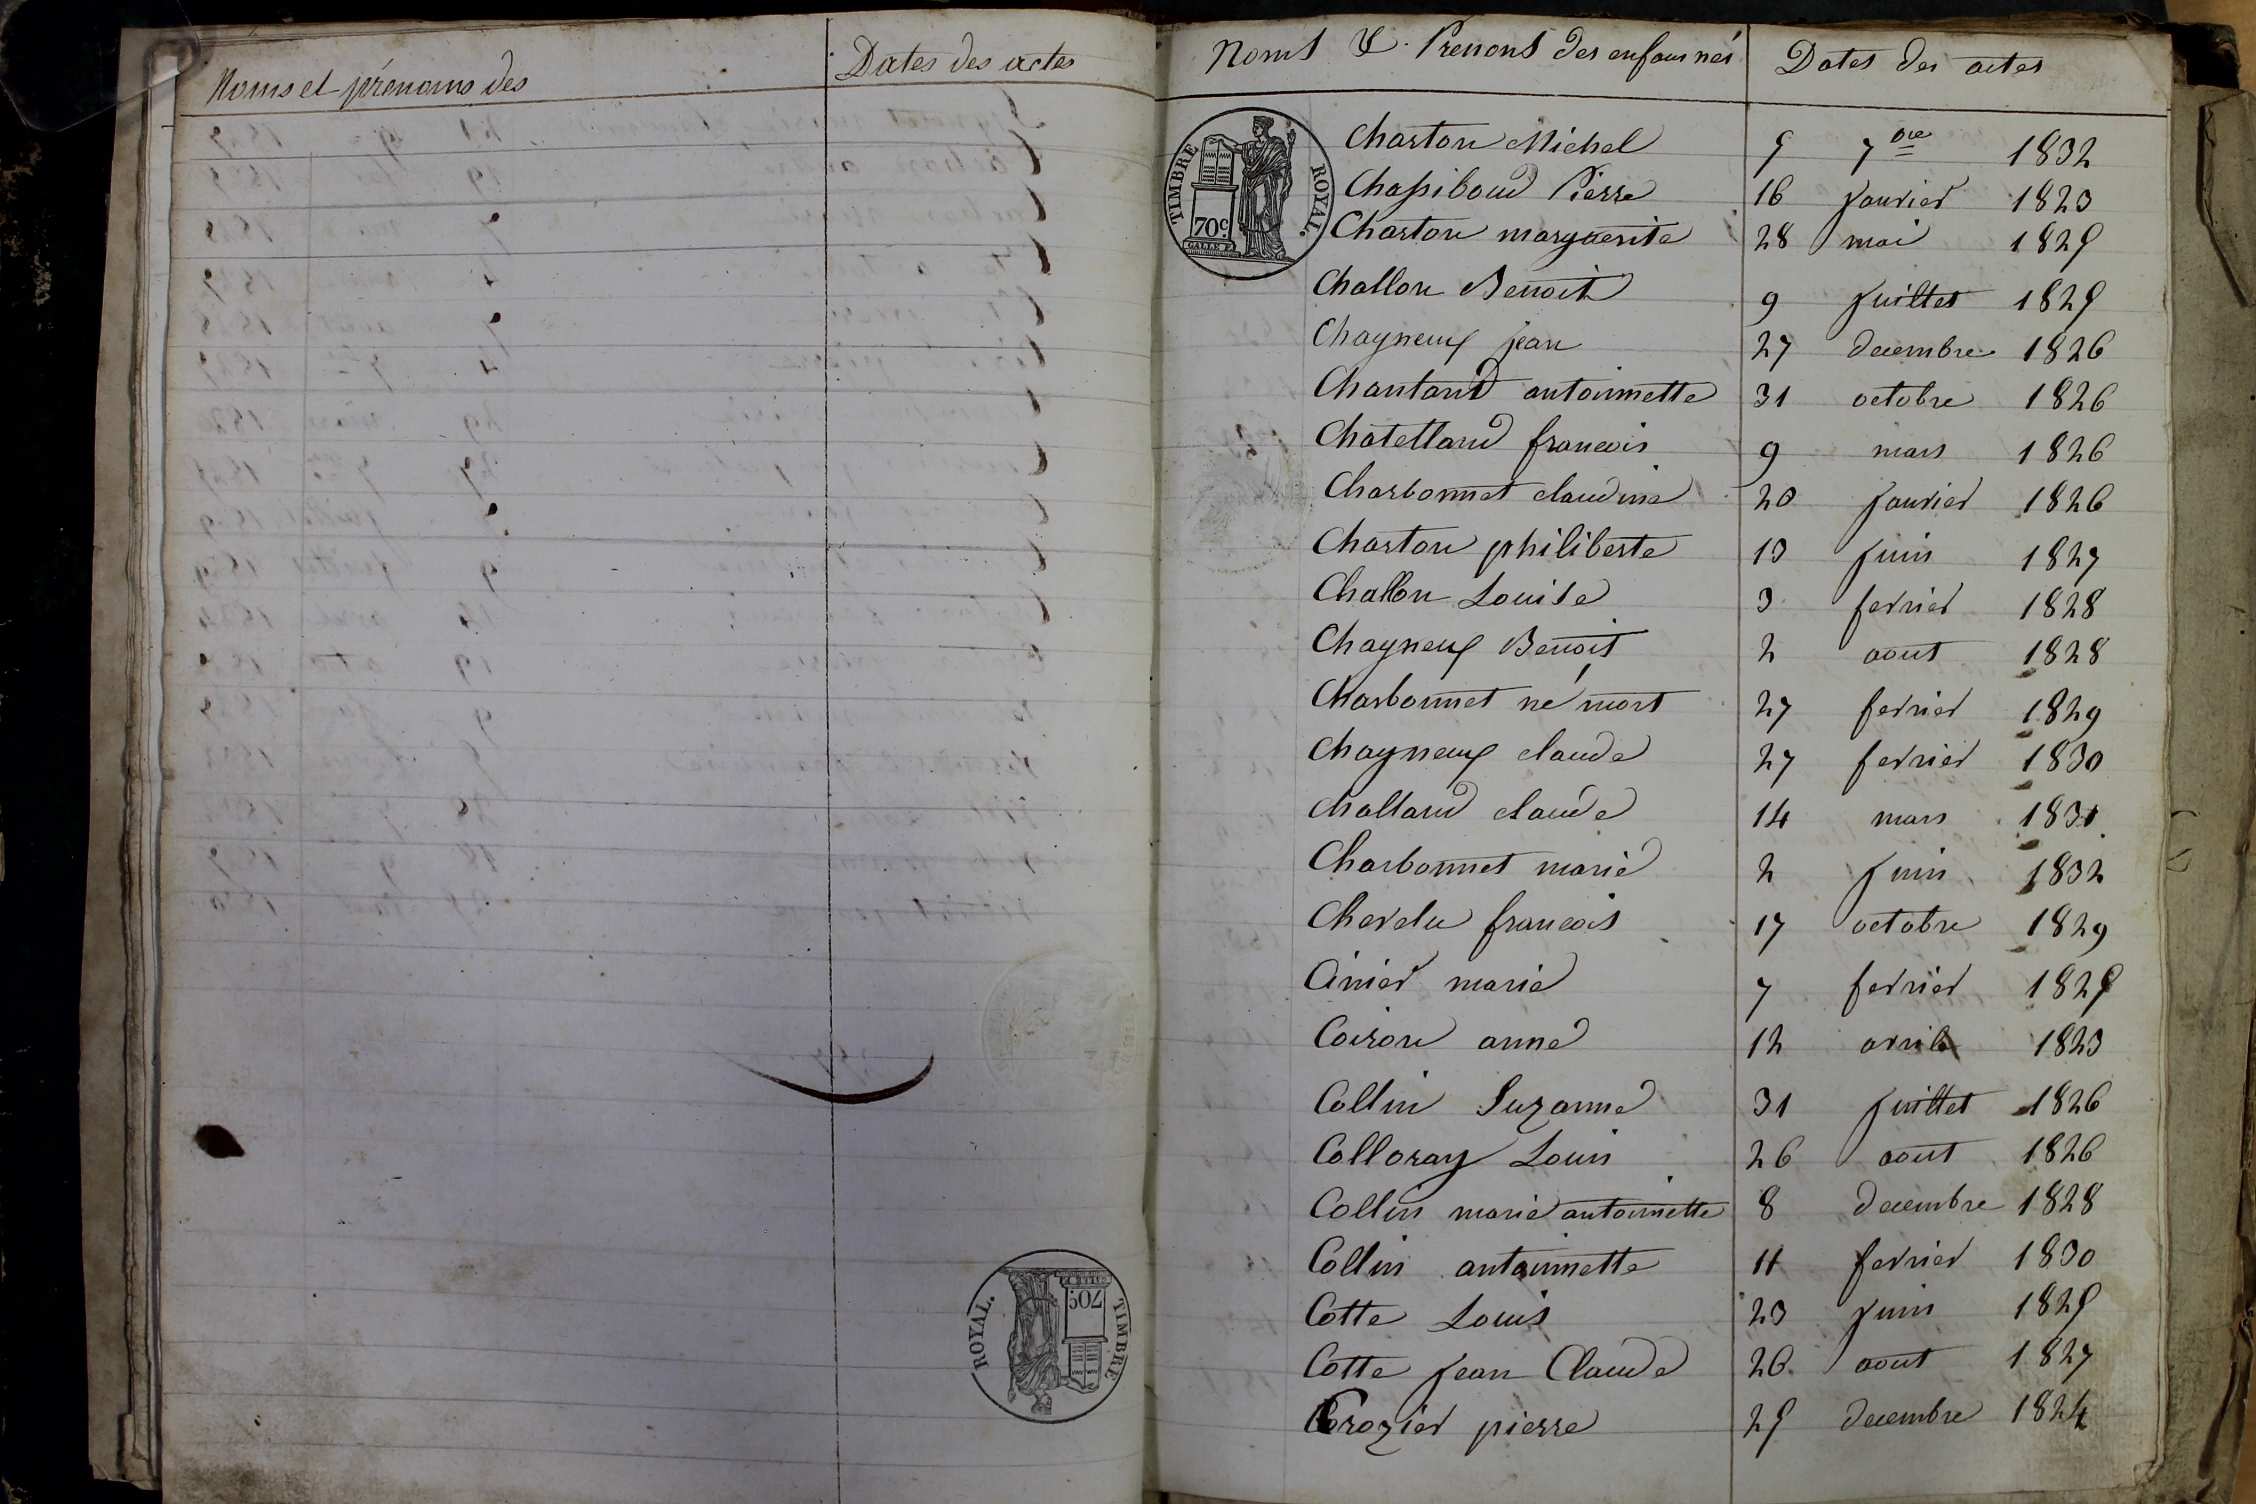 Noms et prénoms des
Dates des actes
TIMBRE ROYAL.
70c
Noms & Prenons des enfans nés Dates des actes
TIMBRE ROYAL.
70c
Charton Michel 5 7bre 1832
Chassiboud Pierre 16 janvier 1823
Charton marguerite 28 mai 1825
Challon Benoit 9 juillet 1825
Chagneux jean 27 decembre 1826
Chantard antoinnette 31 octobre 1826
Chatellard francois 9 mars 1826
Charbonnet claudine 20 janvier 1826
Charton philiberte 13 juin 1827
Challon Louise 3 fevrier 1828
Chagneux Benoit 2 aout 1828
Charbonnet né mort 27 fevrier 1829
Chagneux claude 27 fevrier 1830
challand claude 14 mars 1831
Charbonnet marie 2 juin 1832
Chevelu francois 17 octobre 1829
Cinier marie 7 fevrier 1825
Coiron anne 12 avril 1823
Collin Suzanne 31 juillet 1826
Colloray Louis 26 aout 1826
Collin marie antoinnette 8 decembre 1828
Collin antoinnette 11 fevrier 1830
Cotte Louis 23 juin 1825
Cotte jean Claude 26 aout 1827
Crozier pierre 25 decembre 1824